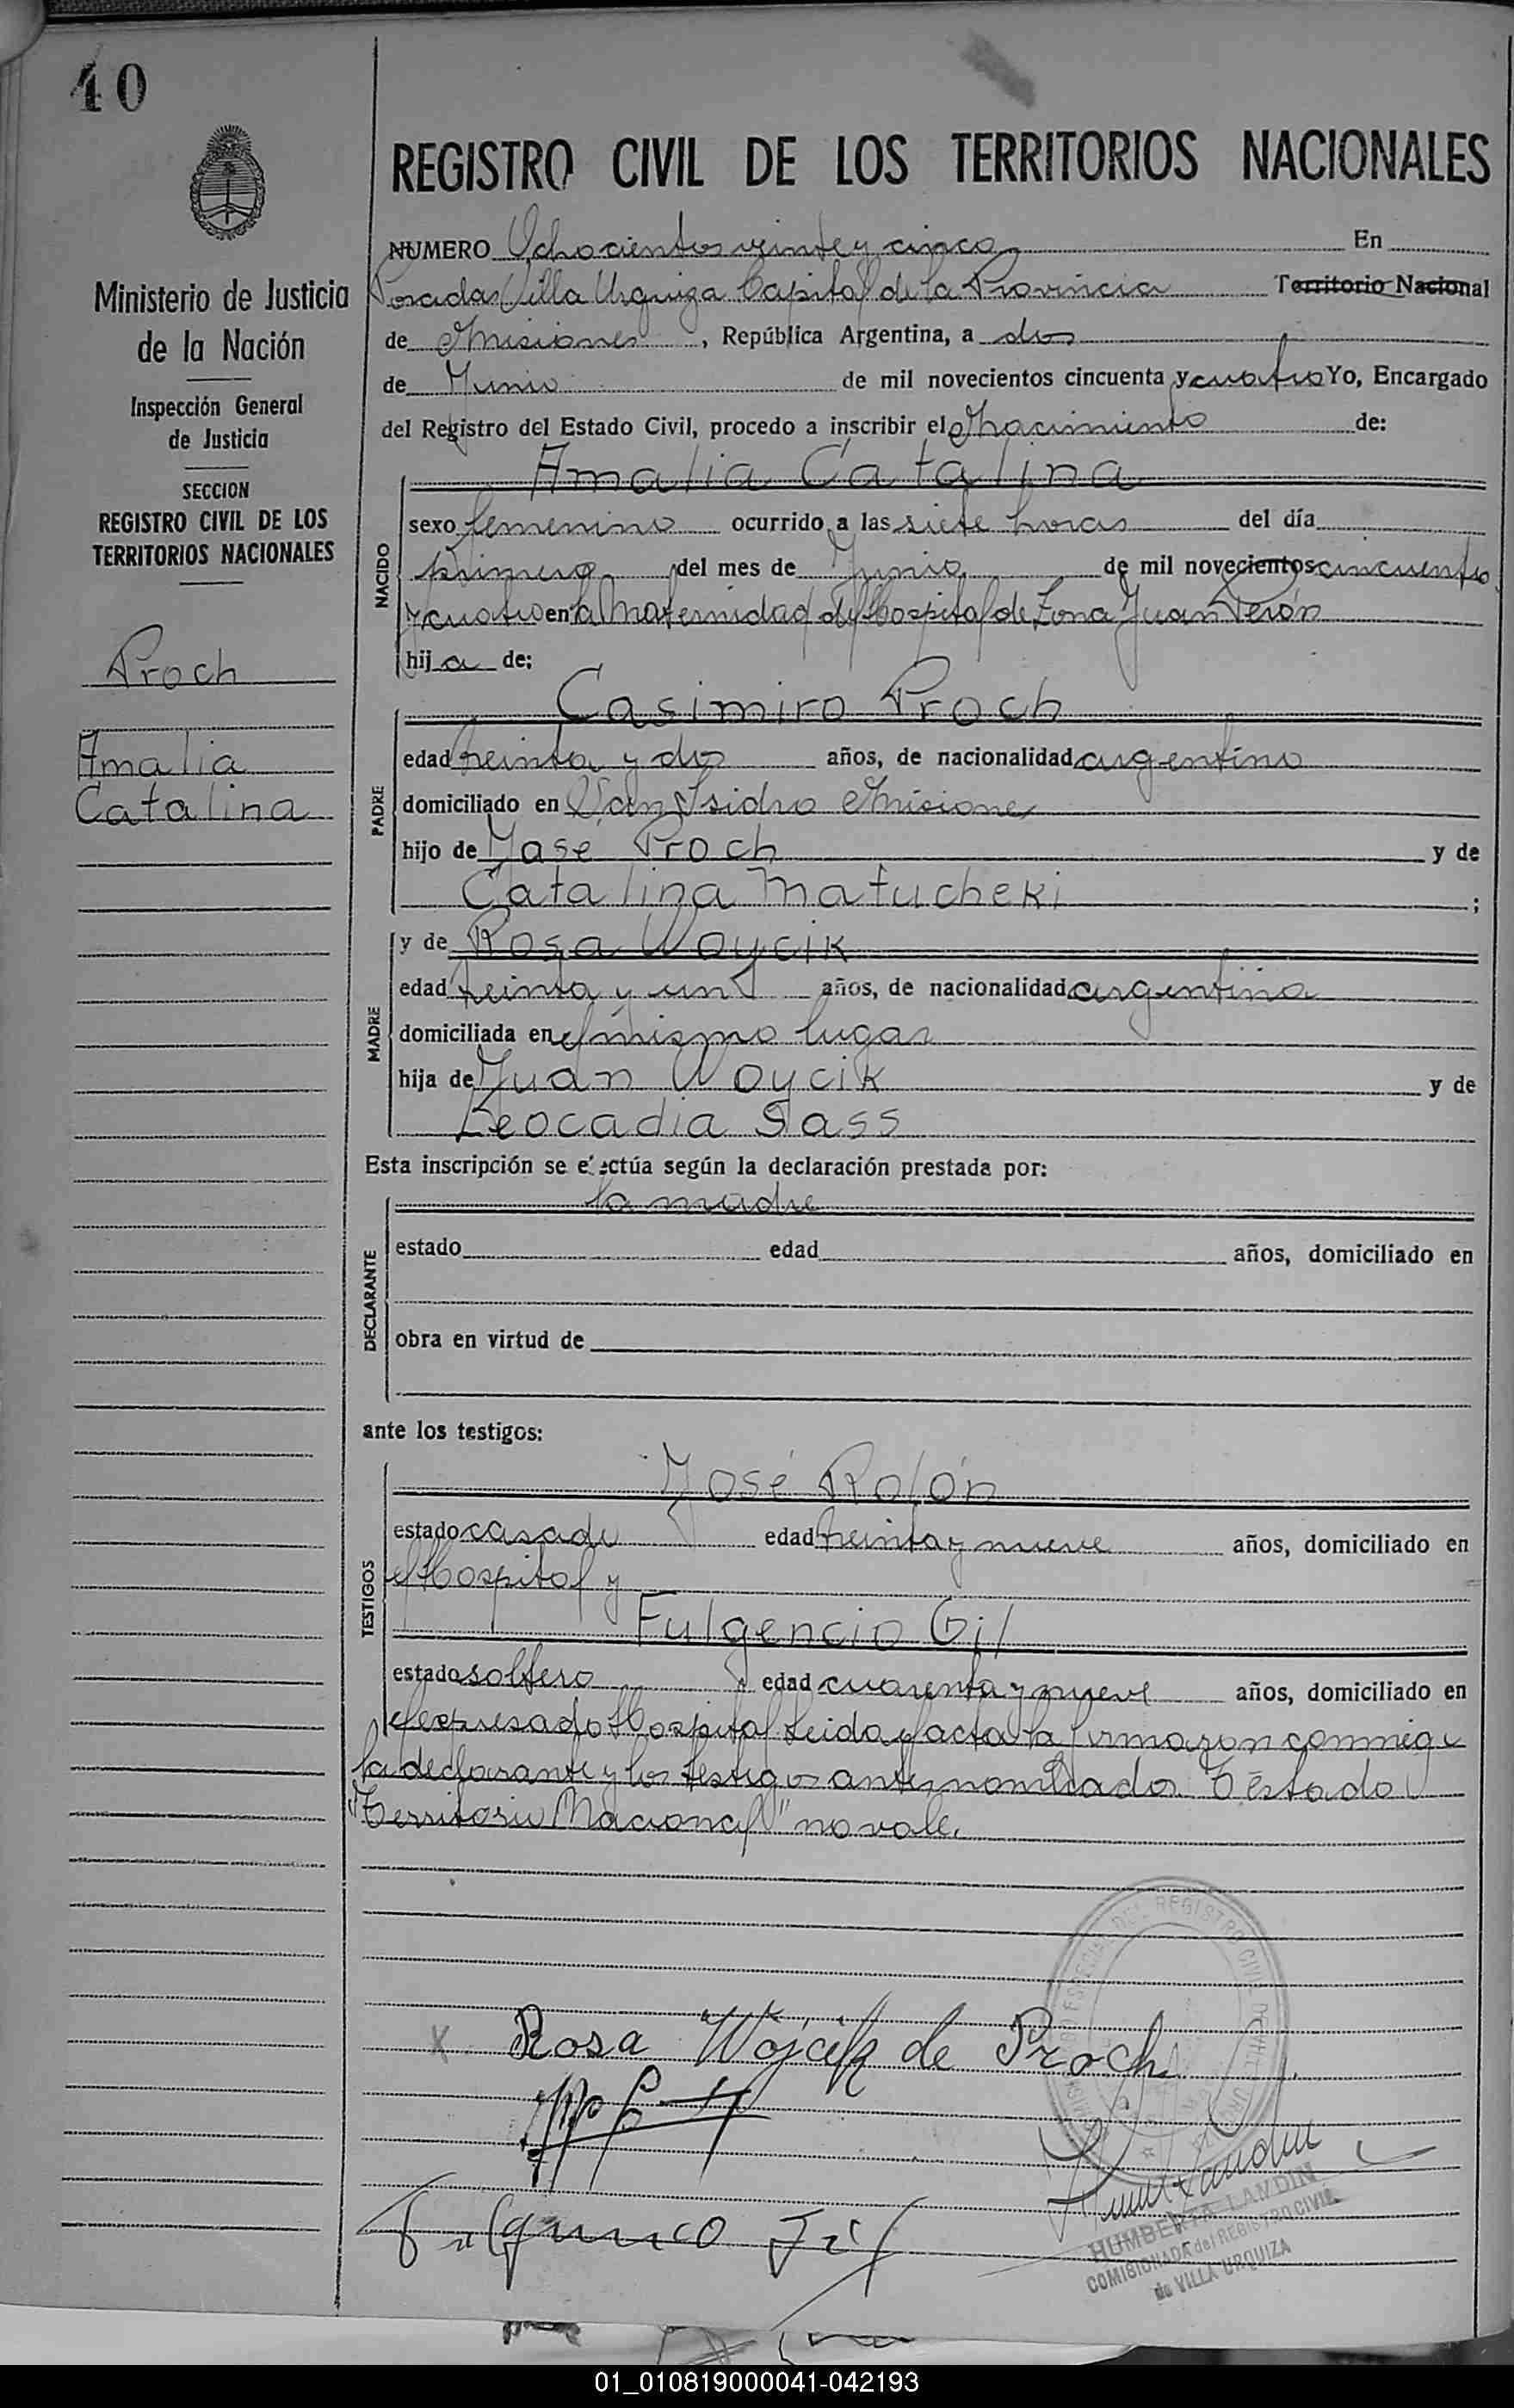 10
REGISTRO CIVIL DE LOS TERRITORIOS NACIONALES
Ministerio de Justicia
de la Nación
Inspección General
de Justicia
SECCION
REGISTRO CIVIL DE LOS
TERRITORIOS NACIONALES
Proch
Amalia
Catalina
NUMERO Ochocientos veinte y cinco En
Posadas Villa Urquiza Capital de la Provincia Territorio Nacional
de Misiones, República Argentina, a dos
de Junio de mil novecientos cincuenta y cuatro Yo, Encargado
del Registro del Estado Civil, procedo a inscribir el Nacimiento de:
Amalia Catalina
NACIDO
sexo femenino ocurrido a las siete horas del día
primero del mes de Junio de mil novecientos cincuenta
y cuatro en la Maternidad del Hospital de Zona Juan Perón
hija de:
Casimiro Proch
PADRE
edad treinta y dos años, de nacionalidad argentino
domiciliado en San Isidro Misiones
hijo de José Proch y de
Catalina Matucheki;
MADRE
y de Rosa Woycik
edad treinta y un años, de nacionalidad argentina
domiciliada en el mismo lugar
hija de Juan Woycik y de
Leocadia Sass
Esta inscripción se efectúa según la declaración prestada por:
la madre
DECLARANTE
estado edad años, domiciliado en
obra en virtud de
ante los testigos:
José Rolón
TESTIGOS
estado casado edad treinta y nueve años, domiciliado en
el Hospital y
Fulgencio Gil
estado soltero edad cuarenta y nueve años, domiciliado en
el expresado Hospital Leida el acta la firmaron conmigo
la declarante y los testigos antes nombrados Testado
"Territorio Nacional" no vale.
Rosa Wójcik de Proch
Fulgencio Gil
HUMBERTA LANDIN
COMISIONADA del REGISTRO CIVIL
de VILLA URQUIZA
01_010819000041-042193